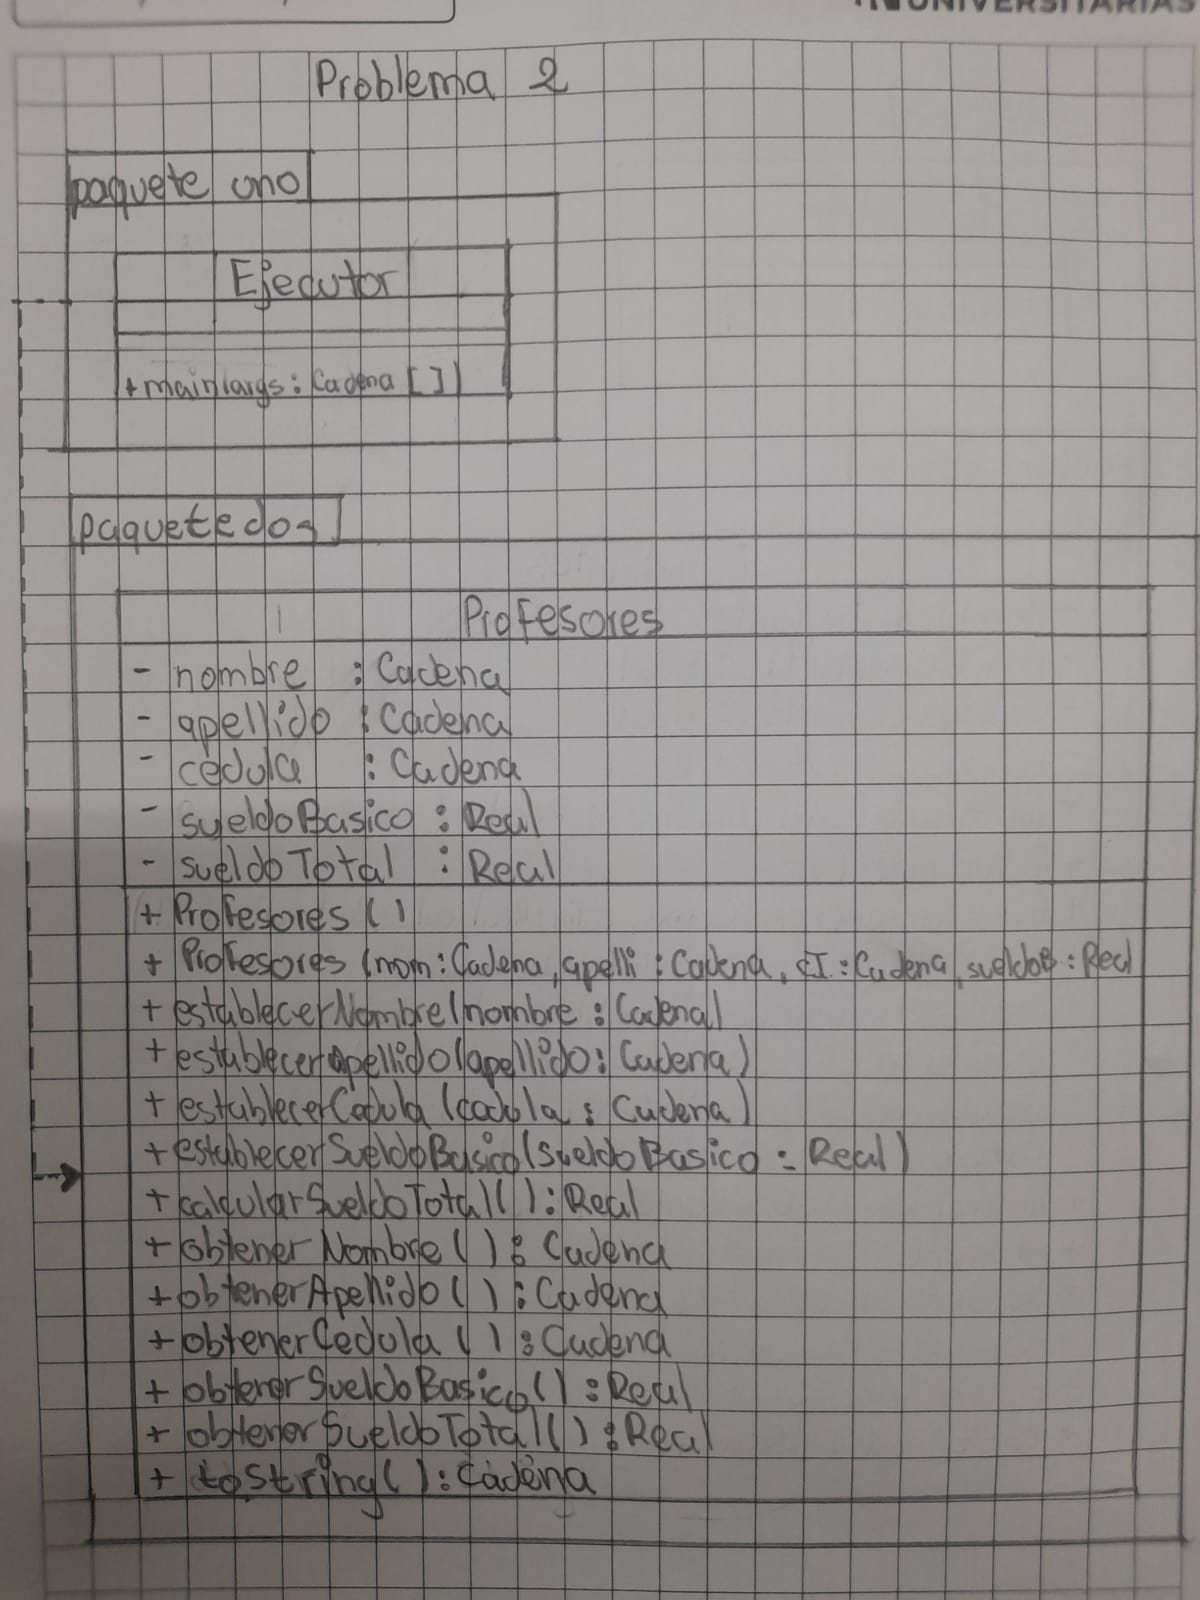 UNIVERSITARIAS
Problema 2
paquete uno
Ejecutor
+main(args: Cadena [])
paquete dos
Profesores
- nombre : Cadena
- apellido : Cadena
- cedula : Cadena
- sueldoBasico : Real
- sueldoTotal : Real
+ Profesores ( )
+ Profesores (nom: Cadena, apelli : Cadena, cI : Cadena, sueldoB : Real
+ establecerNombre(nombre : Cadena)
+ establecerapellido(apellido: Cadena)
+ establecerCedula (cedula : Cadena)
+ establecerSueldoBasico(sueldoBasico : Real)
+ calcularSueldoTotal( ): Real
+ obtener Nombre ( ) : Cadena
+ obtenerApellido ( ) : Cadena
+ obtenerCedula ( ) : Cadena
+ obtenerSueldoBasico() : Real
+ obtenerSueldoTotal( ) : Real
+ toString( ) : Cadena